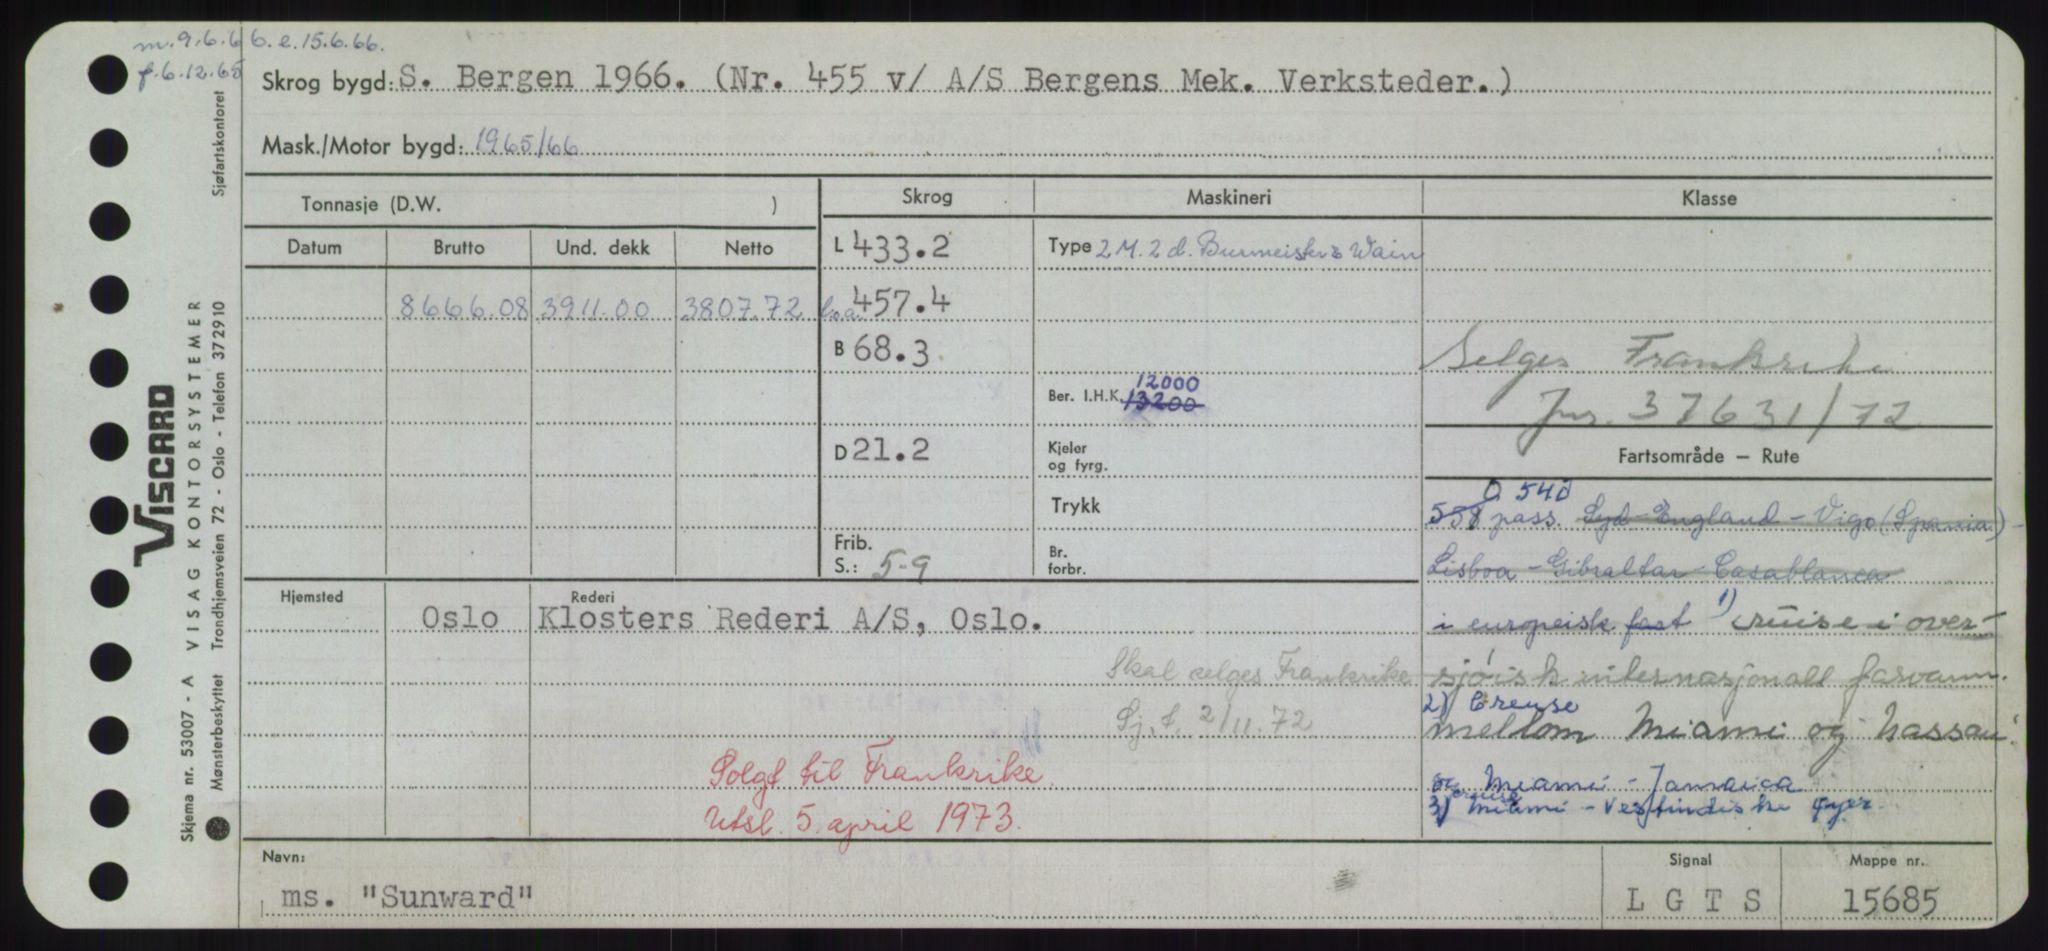 m. 9.6.66. e. 15.6.66.
f. 6.12.65
Skrog bygd: S. Bergen 1966. (Nr. 455 v/ A/S Bergens Mek. Verksteder.)
Mask./Motor bygd: 1965/66
Tonnasje (D.W. )
Skrog
Maskineri
Klasse
Datum
Brutto
Und. dekk
Netto
L 433.2
Type 2 M. 2 d. Burmeister & Wain
8666.08
3911.00
3807.72
l.o.a. 457.4
B 68.3
Selges Frankrike
Jnr. 37631/72
12000
Ber. I.H.K. 13200
D 21.2
Kjeler
og fyrg.
Fartsområde – Rute
Trykk
540
558 pass. Syd-England - Vigo (Spania) -
Frib.
S.: 5-9
Br.
forbr.
Lisboa - Gibraltar - Casablanca
Hjemsted
Oslo
Rederi
Klosters Rederi A/S, Oslo.
i europeisk fart 1) cruise i over-
sjøisk internasjonalt farvann.
Skal selges Frankrike
Sj. f. 2/11.72
2) Creuse
mellom Miami og Nassau
Solgt til Frankrike.
Utsl. 5. april 1973.
og Miami - Jamaica
3) cruise Miami - Vestindiske øyer.
Navn:
ms. "Sunward"
Signal
LGTS
Mappe nr.
15685
Sjøfartskontoret
VISCARD
VISAG KONTORSYSTEMER
Trondhjemsveien 72 - Oslo - Telefon 372910
Skjema nr. 53007 - A
Mønsterbeskyttet